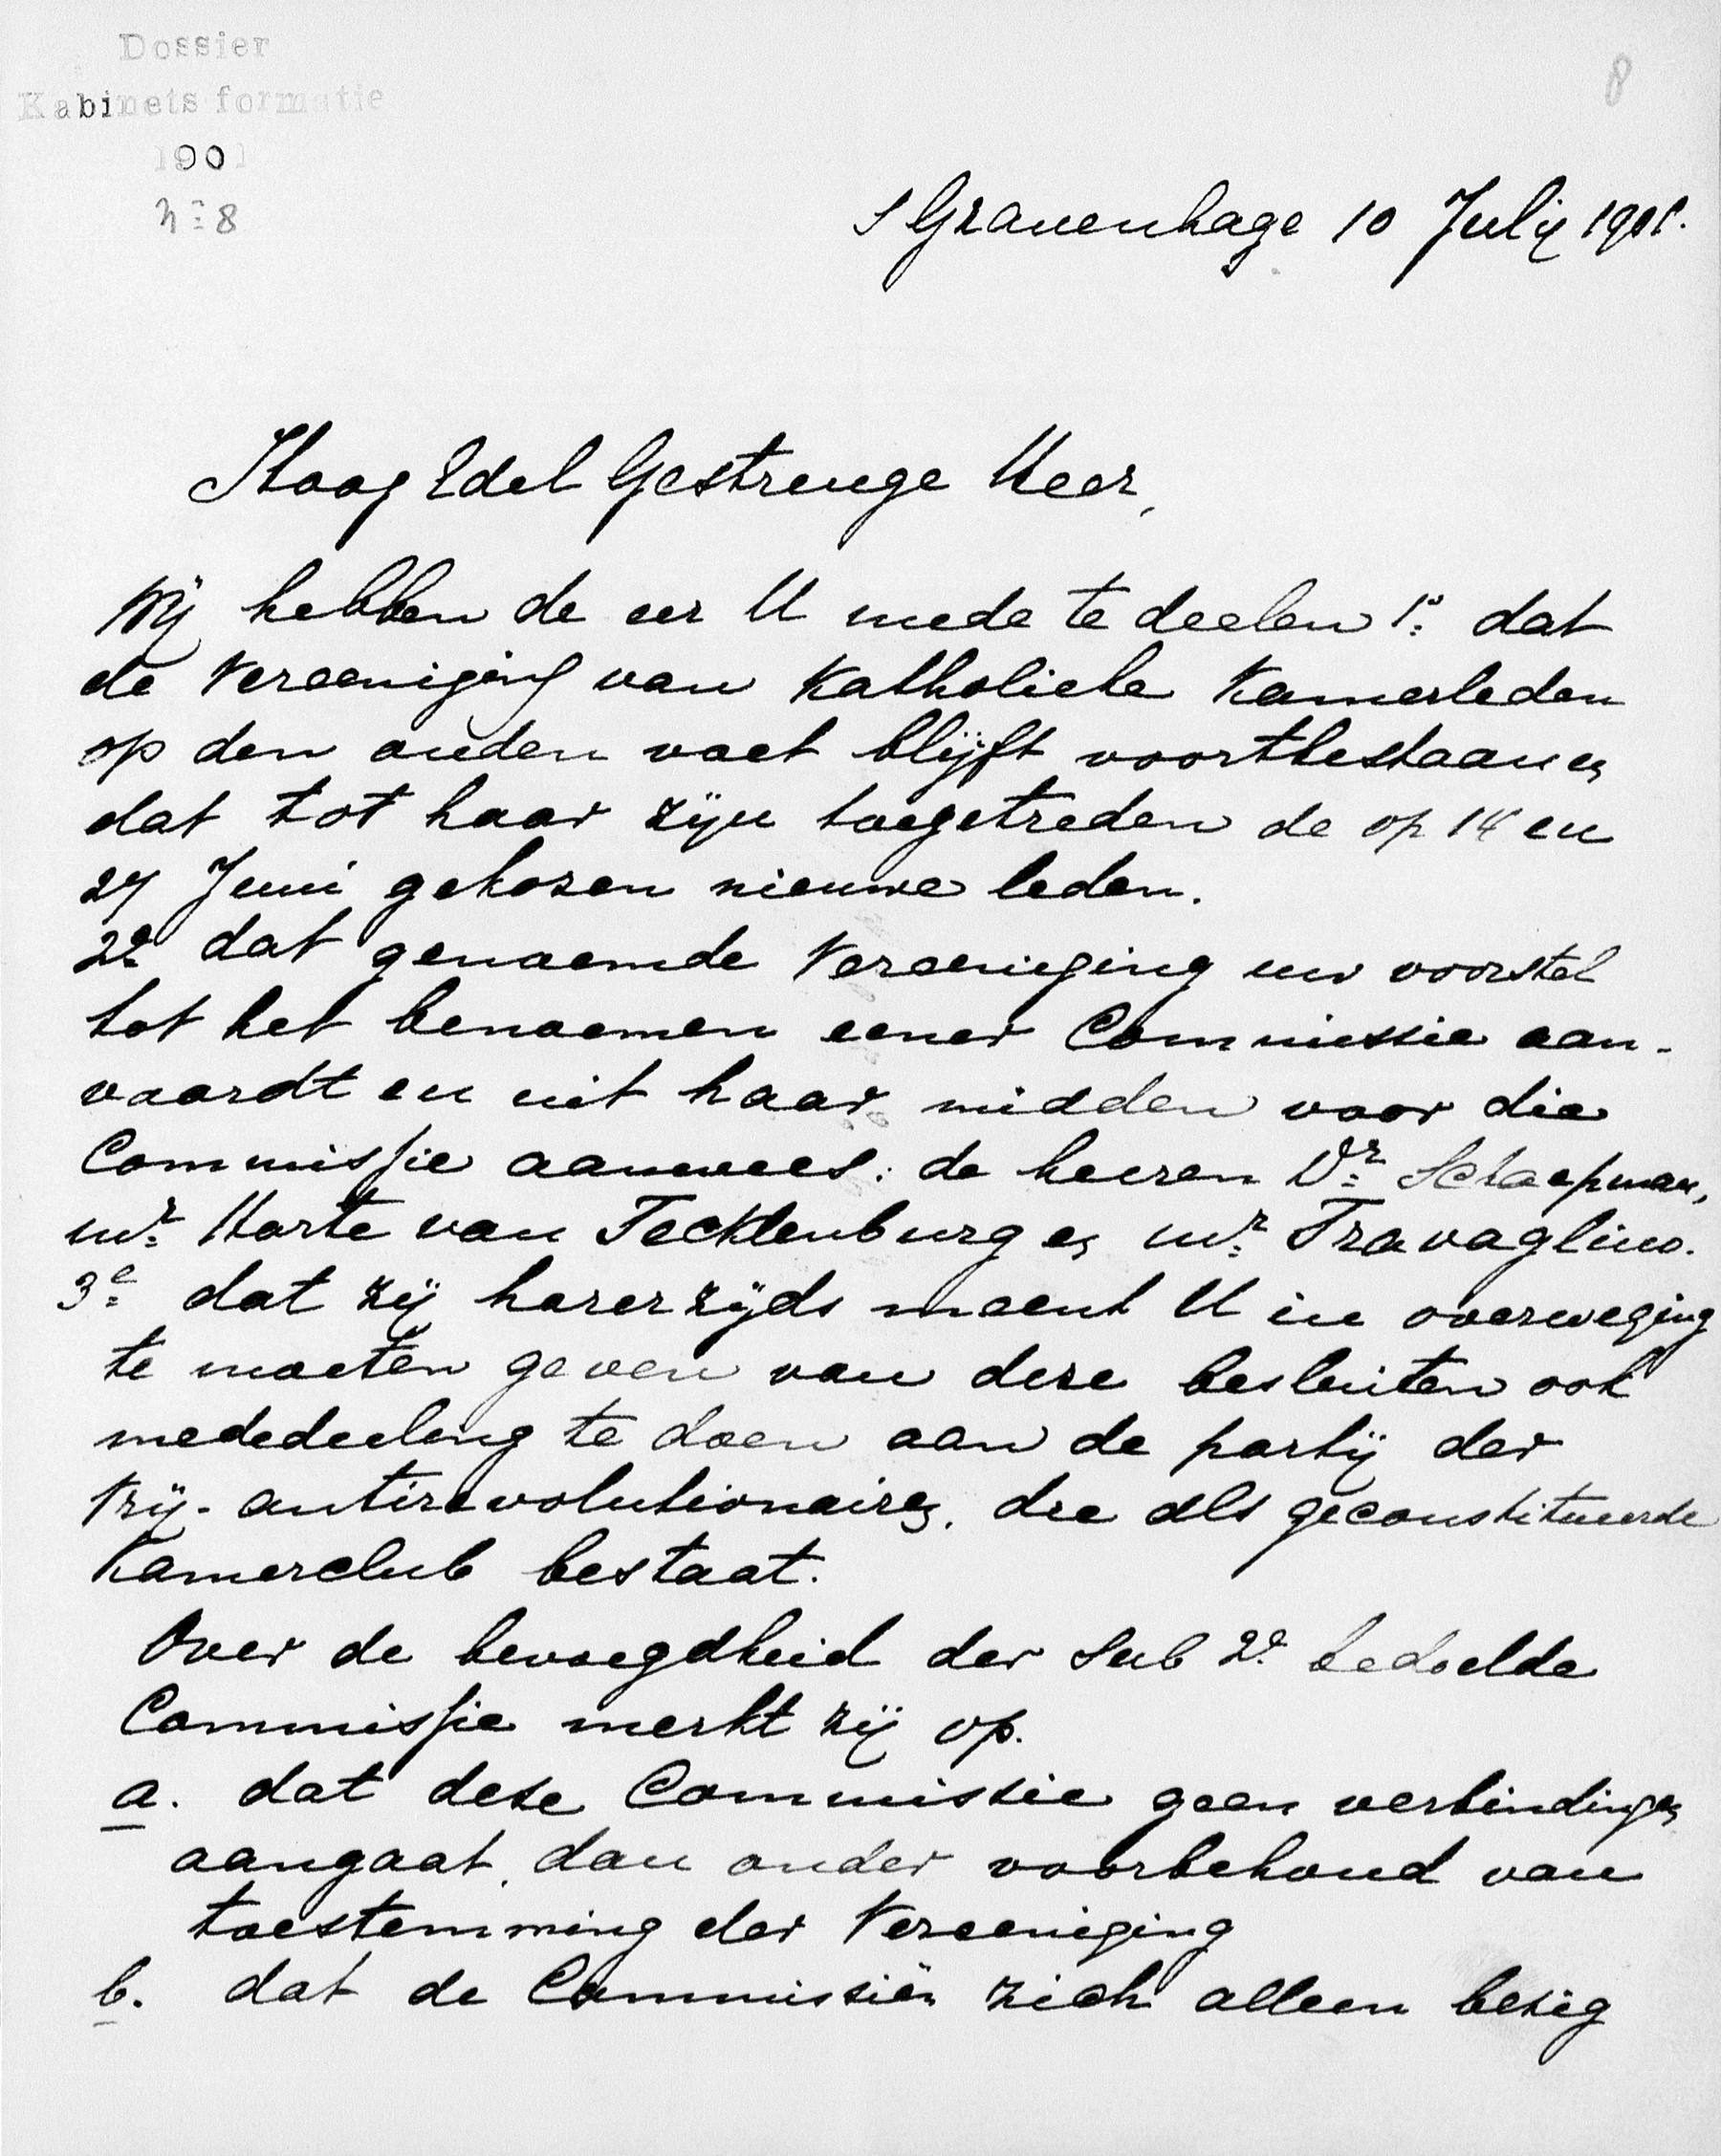 Dossier
Kabinetsformatie
1901
No 8
8
s Gravenhage 10 July 1901.
Hoog Edel Gestrenge Heer,
Wij hebben de eer U mede te deelen 1o dat
de Vereeniging van Katholieke Kamerleden
op den ouden voet blijft voortbestaan en
dat tot haar zijn toegetreden de op 14 en
27 Juni gekozen nieuwe leden.
2o dat genoemde Vereeniging uw voorstel
tot het benoemen eener Commissie aan-
vaardt en uit haar midden voor die
Commissie aanwees: de heeren Dr Schaepman,
mr Harte van Tecklenburg en mr Travaglino.
3e dat zij harerzijds meent U in overweging
te moeten geven van deze besluiten ook
mededeeling te doen aan de partij der
Vrij-antirevolutionairen, die als geconstitueerde
Kamerclub bestaat.
Over de bevoegdheid der sub 2o bedoelde
Commissie merkt zij op.
a. dat deze Commissie geen verbindingen
aangaat, dan onder voorbehoud van
toestemming der Vereeniging
b. dat de Commissiën zich alleen bezig